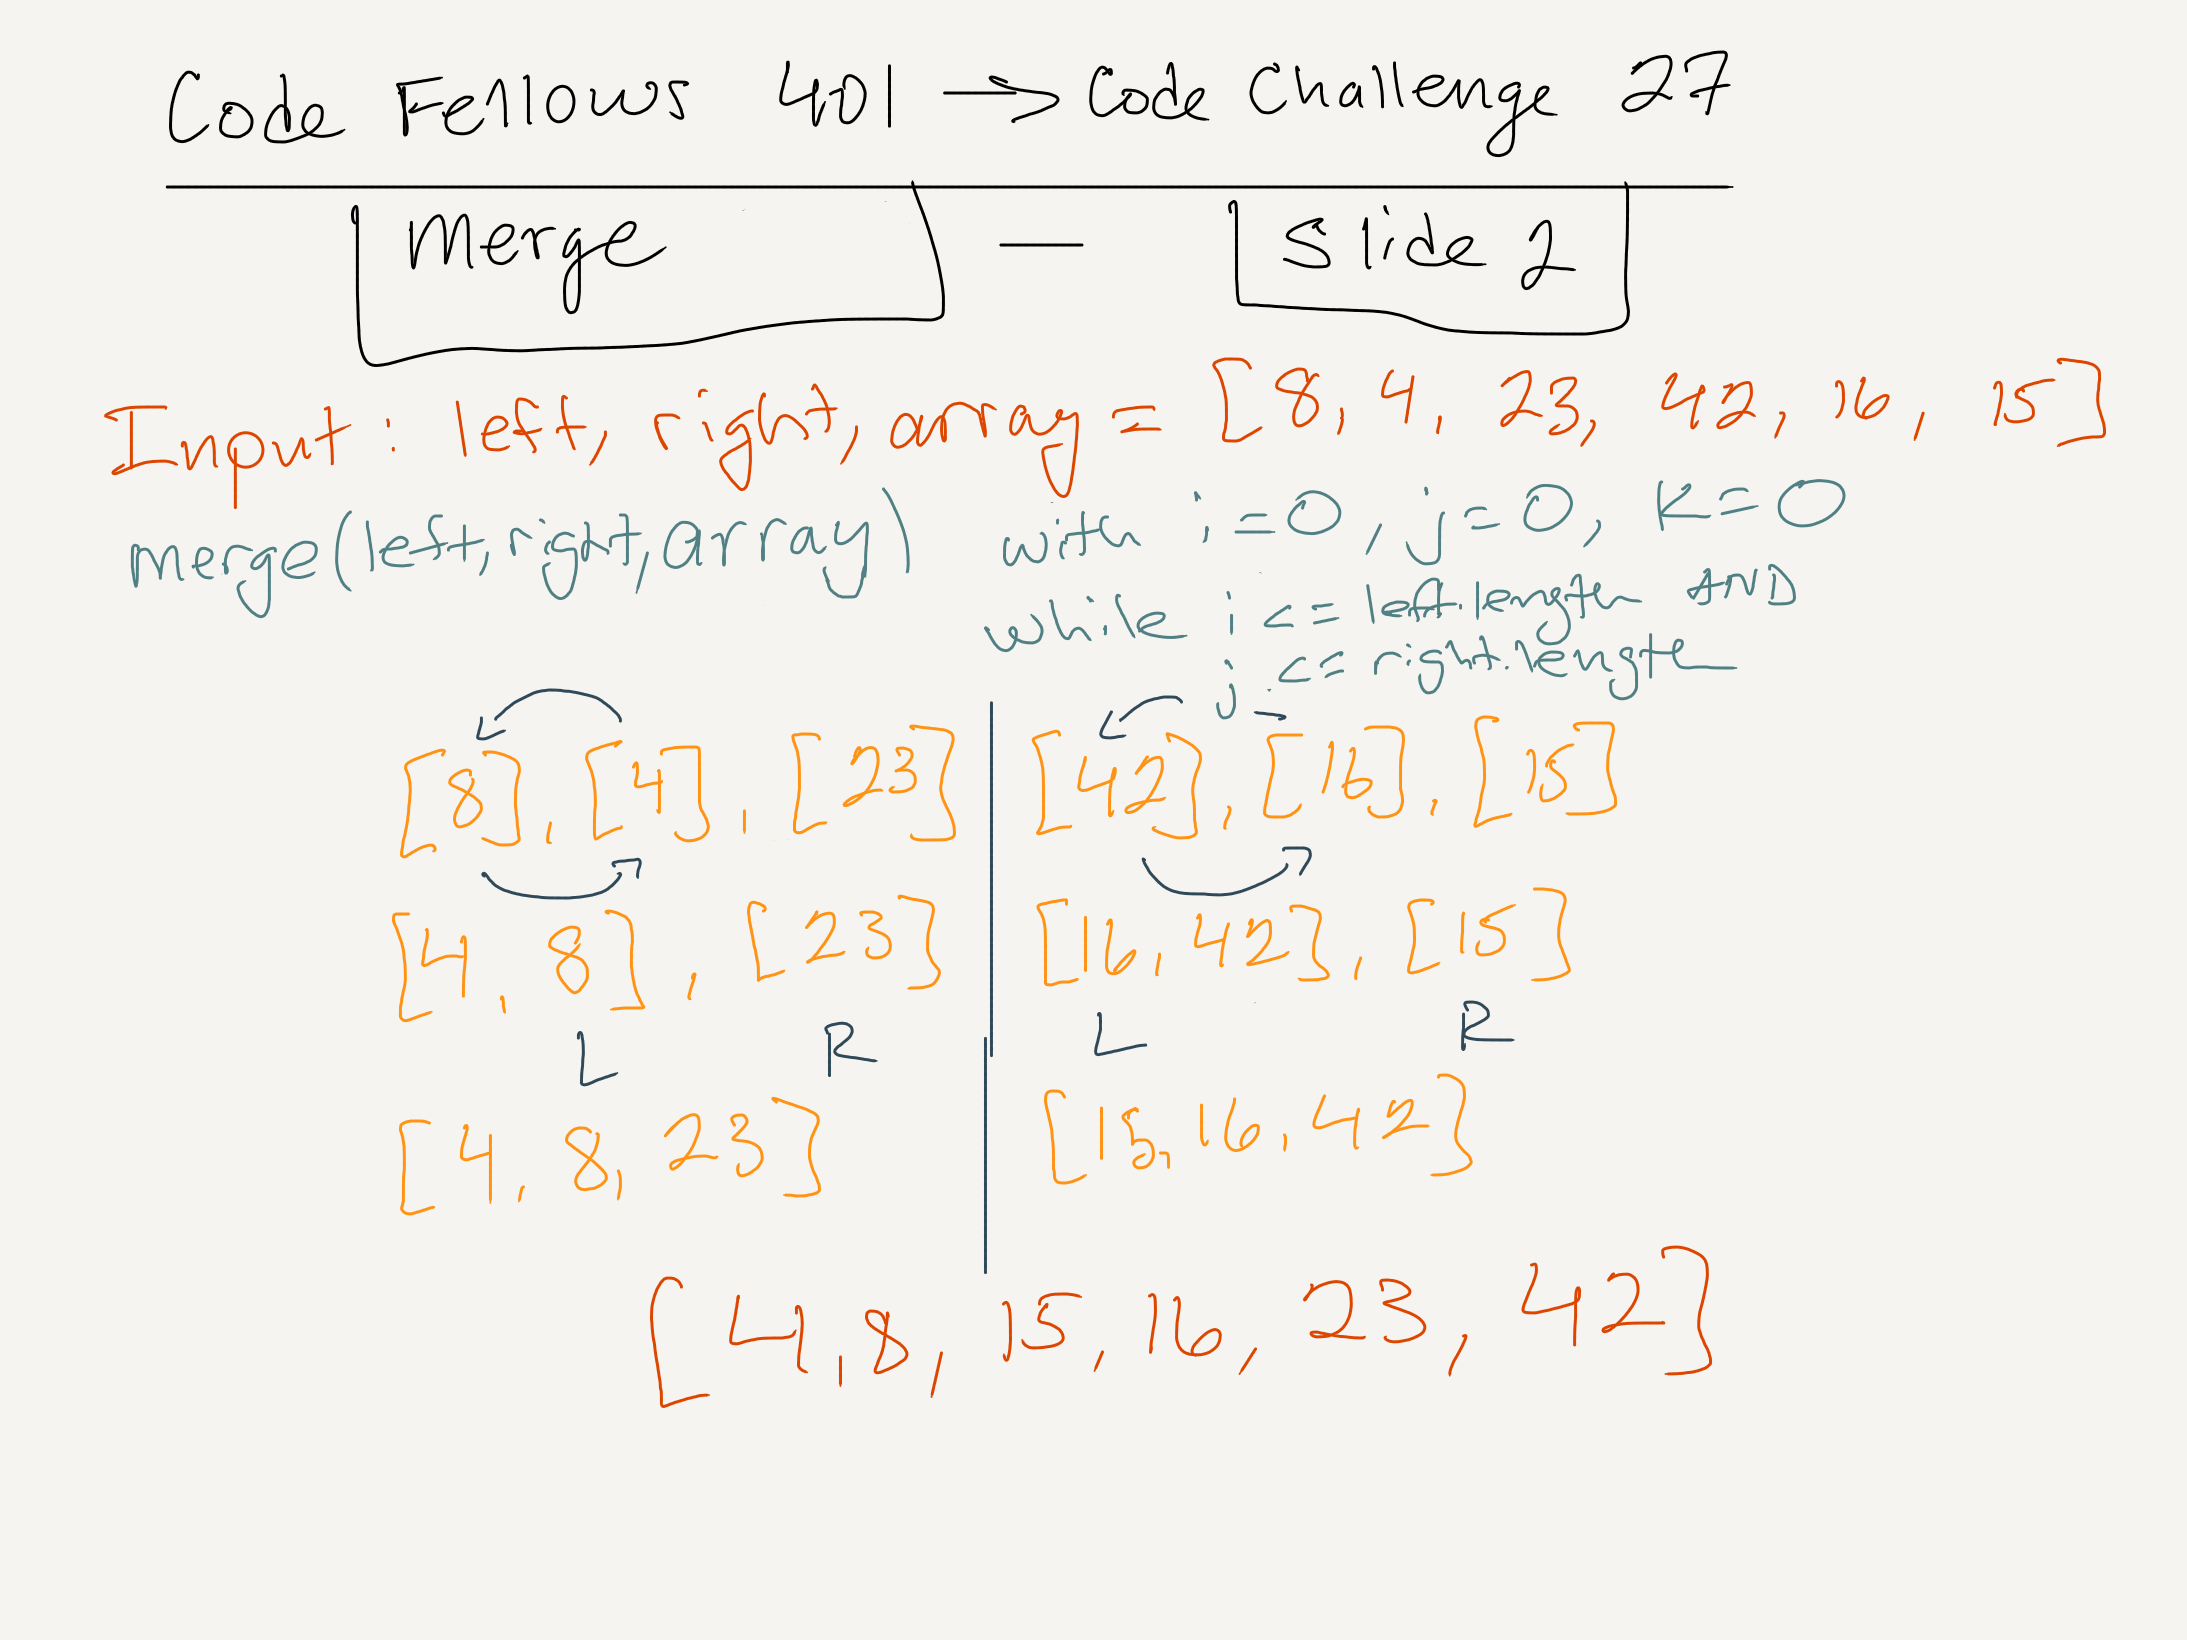 Code Fellows 401 → Code Challenge 27
Merge — Slide 2
Input: left, right, array = [8, 4, 23, 42, 16, 15]
merge(left, right, array) with i=0, j=0, k=0
while i <= left.length AND
j <= right.length
[8], [4], [23] [42], [16], [15]
[4, 8], [23] [16, 42], [15]
L R L R
[4, 8, 23] [15, 16, 42]
[4, 8, 15, 16, 23, 42]